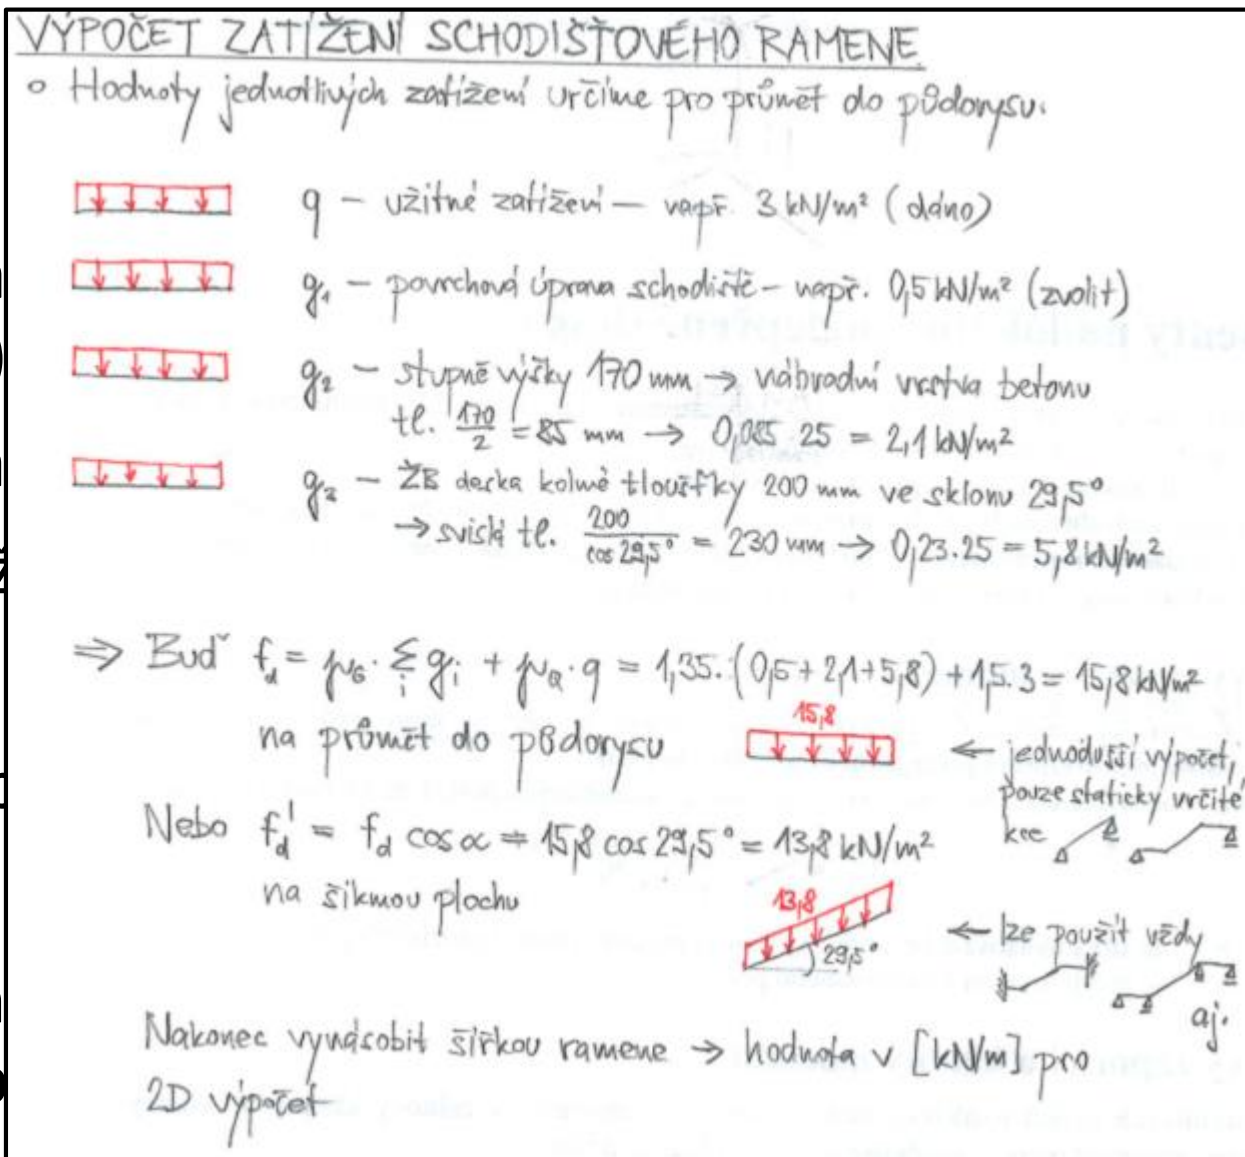 VÝPOČET ZATÍŽENÍ SCHODIŠŤOVÉHO RAMENE
○ Hodnoty jednotlivých zatížení určíme pro průmět do půdorysu.
q – užitné zatížení – např. 3 kN/m² (dáno)
g₁ – povrchová úprava schodiště – např. 0,5 kN/m² (zvolit)
g₂ – stupně výšky 170 mm → náhradní vrstva betonu
tl. 170/2 = 85 mm → 0,085 . 25 = 2,1 kN/m²
g₃ – ŽB deska kolmé tloušťky 200 mm ve sklonu 29,5°
→ svislá tl. 200/cos 29,5° = 230 mm → 0,23.25 = 5,8 kN/m²
⇒ Buď f_d = γ_G . Σ_i g_i + γ_Q . q = 1,35.(0,5+2,1+5,8)+1,5.3 = 15,8 kN/m²
na průmět do půdorysu
15,8
← jednodušší výpočet,
pouze staticky určité
kce
Nebo f_d' = f_d cos α = 15,8 cos 29,5° = 13,8 kN/m²
na šikmou plochu
13,8
29,5°
← lze použít vždy
aj.
Nakonec vynásobit šířkou ramene → hodnota v [kN/m] pro
2D výpočet